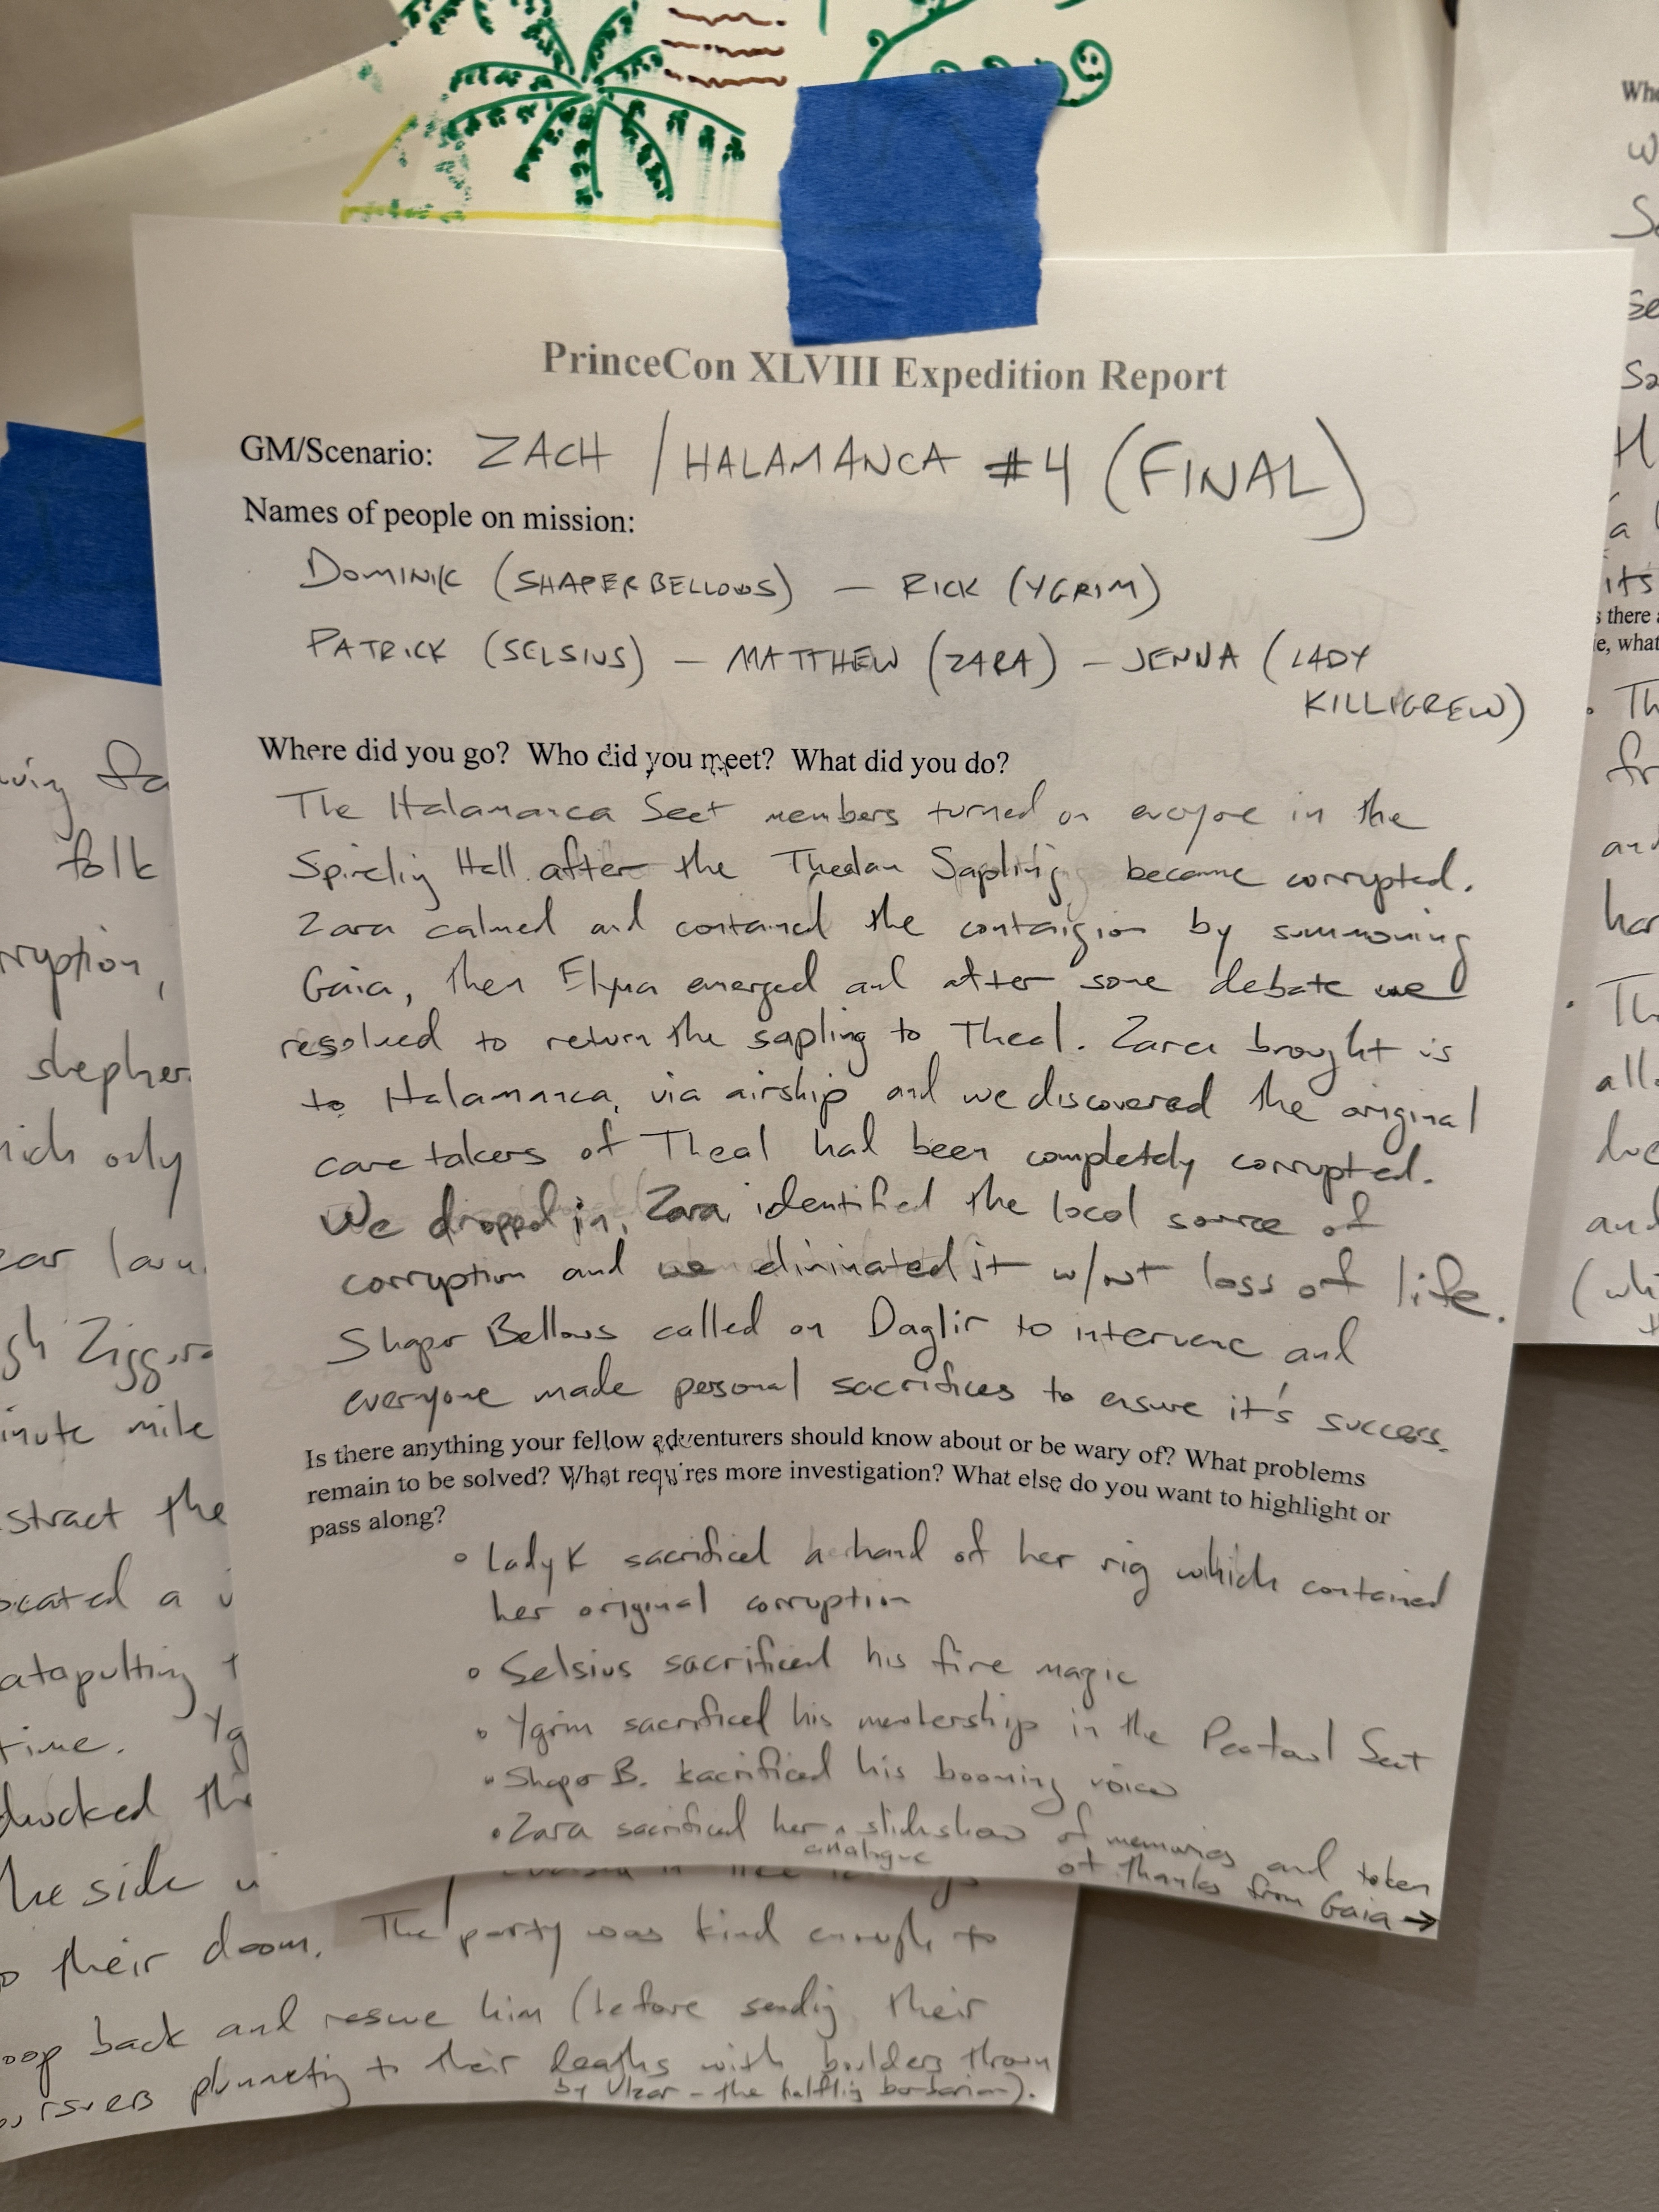 PrinceCon XLVIII Expedition Report
GM/Scenario: ZACH / HALAMANCA #4 (FINAL)
Names of people on mission:
DOMINIK (SHAPER BELLOWS) — RICK (YGRIM)
PATRICK (SELSIUS) — MATTHEW (ZARA) — JENNA (LADY
KILLIGREW)
Where did you go? Who did you meet? What did you do?
The Halamanca Sect members turned on everyone in the
Hall after the Thealan Sapling became corrupted.
Zara calmed and contained the contaigion by summoning
Gaia, then emerged and after some debate we
resolved to return the sapling to Theal. Zara brought is
to Halamanca, via airship and we discovered the original
care takers of Theal had been completely corrupted.
We dropped in, Zara identified the local source of
corruption and we eliminated it w/out loss of life.
Shaper Bellows called on Daglir to intervene and
everyone made personal sacrifices to ensure it's success.
Is there anything your fellow adventurers should know about or be wary of? What problems
remain to be solved? What requires more investigation? What else do you want to highlight or
pass along?
• Lady K sacrificed hand of her rig which contained
her original corruption
• Selsius sacrificed his fire magic
• Ygrim sacrificed his membership in the Sect
• Shaper B. sacrificed his booming voice
• Zara sacrificed her slideshow of memories and token
analogue
of thanks from Gaia →
folk
rruption,
shepher
hich only
Ziggura
inute mile
stract the
ocated a
atapulting
time. Yg
the side
their doom. The party was kind enough to
oop back and rescue him (before sending their
plummeting to their deaths with boulders thrown
by Ulzar - the halfling barbarian).
Whe
its
s there
e, what
and
har
all
and
(whi